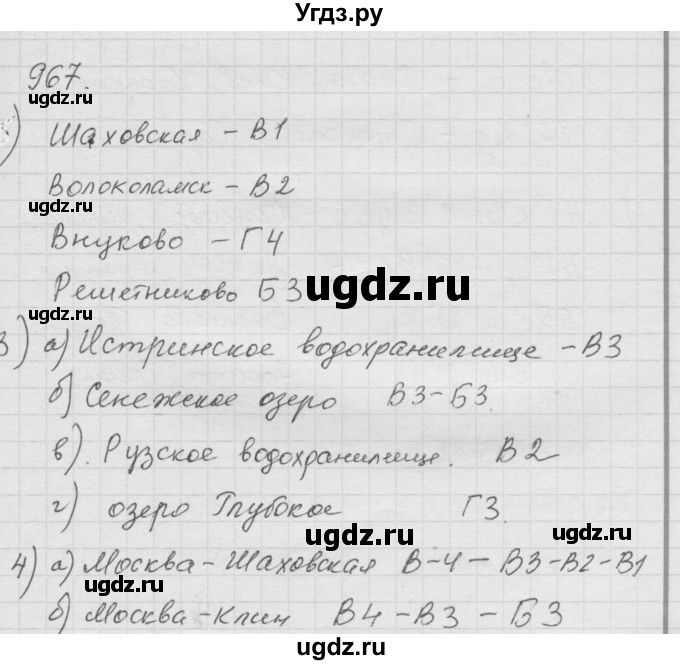 Угдз.ру
967.
ugdz.ru
) Шаховская - В1
Волоколамск - В2
ugdz.ru
Внуково - Г4
Решетниково Б3.
ugdz.ru
ugdz.ru
3) а) Истринское водохранилище - В3
б) Сенежское озеро В3-Б3.
ugdz.ru
в). Рузское водохранилище. В2
г) озеро Глубокое Г3.
ugdz.ru
ugdz.ru
4) а) Москва - Шаховская В-4 - В3-В2-В1
ugdz.ru
б) Москва - Клин В4 - В3 - Б3
ugdz.ru